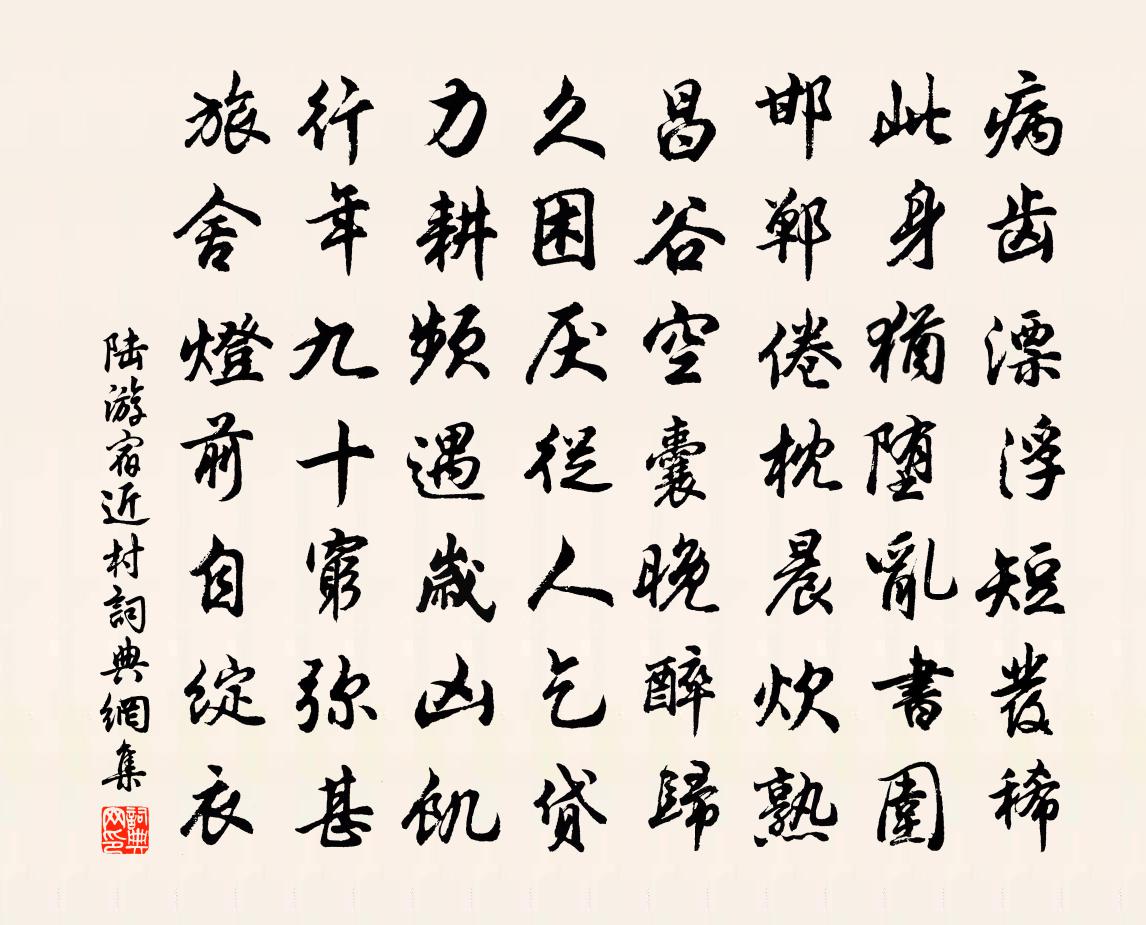 病齿漂浮短發稀
此身猶堕亂書圍
邯鄲倦枕晨炊熟
昌谷空囊晚醉歸
久困厌從人乞貸
力耕頻遇歲凶飢
行年九十窮弥甚
旅舍燈前自綻衣
陸游宿近村詞典網集
詞典网印